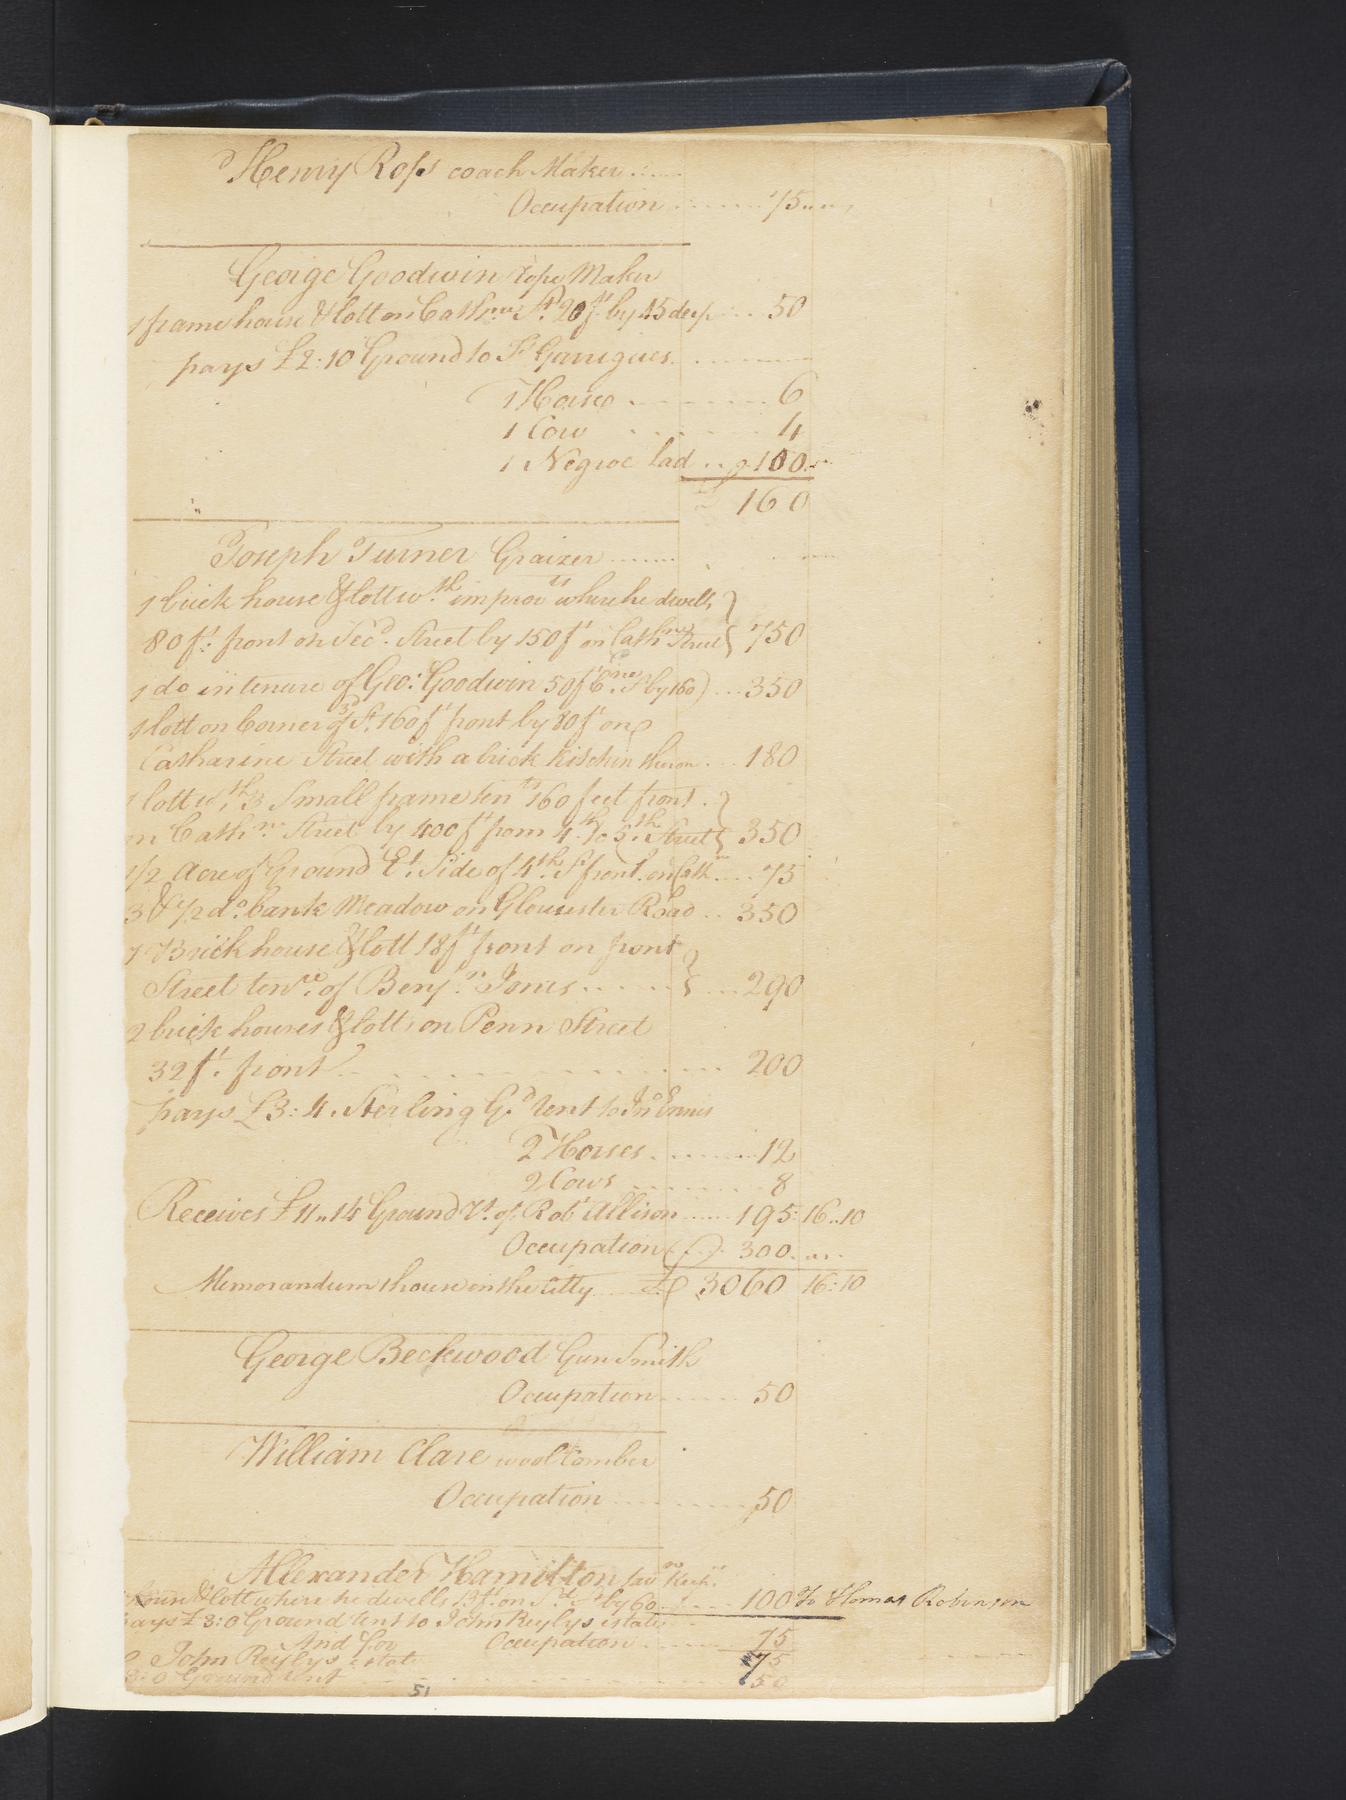 Henry Ross coach Maker ......
Occupation ........ 75 ....
George Goodwin rope Maker
1 frame house & lott on Cathne St. 20 ft by 45 deep ... 50
pays £2:10 Ground to Garrigues ........
1 Horse ........ 6
1 Cow ...... 4
1 Negroe lad .. 100
160
Joseph Turner Graizer .......
1 brick house & lott wth improvts where he dwells
80 ft. front on Secd. Street by 150 ft on Cathne Street } 750
1 do in tenure of Geo: Goodwin 50 ft by 160 ... 350
1 lott on Corner of 3d St. 160 ft front by 80 ft on
Catharine Street with a brick kitchen theron ... 180
1 lott wth 3 Small frame tents 160 feet front
on Cathne Street by 400 ft from 4th to 5th Street } 350
1/2 Acre of Ground Et. Side of 4th St front on Cath .... 75
3 & 1/2 do. bank Meadow on Gloucester Road .. 350
1 Brick house & lott 18 ft front on front
Street tenre of Benjn Jones ........ } ... 290
2 brick houses & lotts on Penn Street
32 ft. front ........ 200
pays £3:4. Sterling Gd rent to Jno Ennis
2 Horses ........ 12
2 Cows ........ 8
Receives £11..14 Ground Rt. of Robt Allison ..... 195: 16..10
Occupation .... 300
Memorandum 1 house in the Citty ... £ 3060 16:10
George Beckwood Gun Smith
Occupation ...... 50
William Clare wool Comber
Occupation ........ 50
Allexander Hamilton
house & lott where he dwells 13 ft. on St by 60 .... 100 To Thomas Robinson
pays £3:0 Ground rent to John Reylys estate
Occupation ........ 75
And for
John Reylys estate 75
3:0 Ground rent ........ 50
51